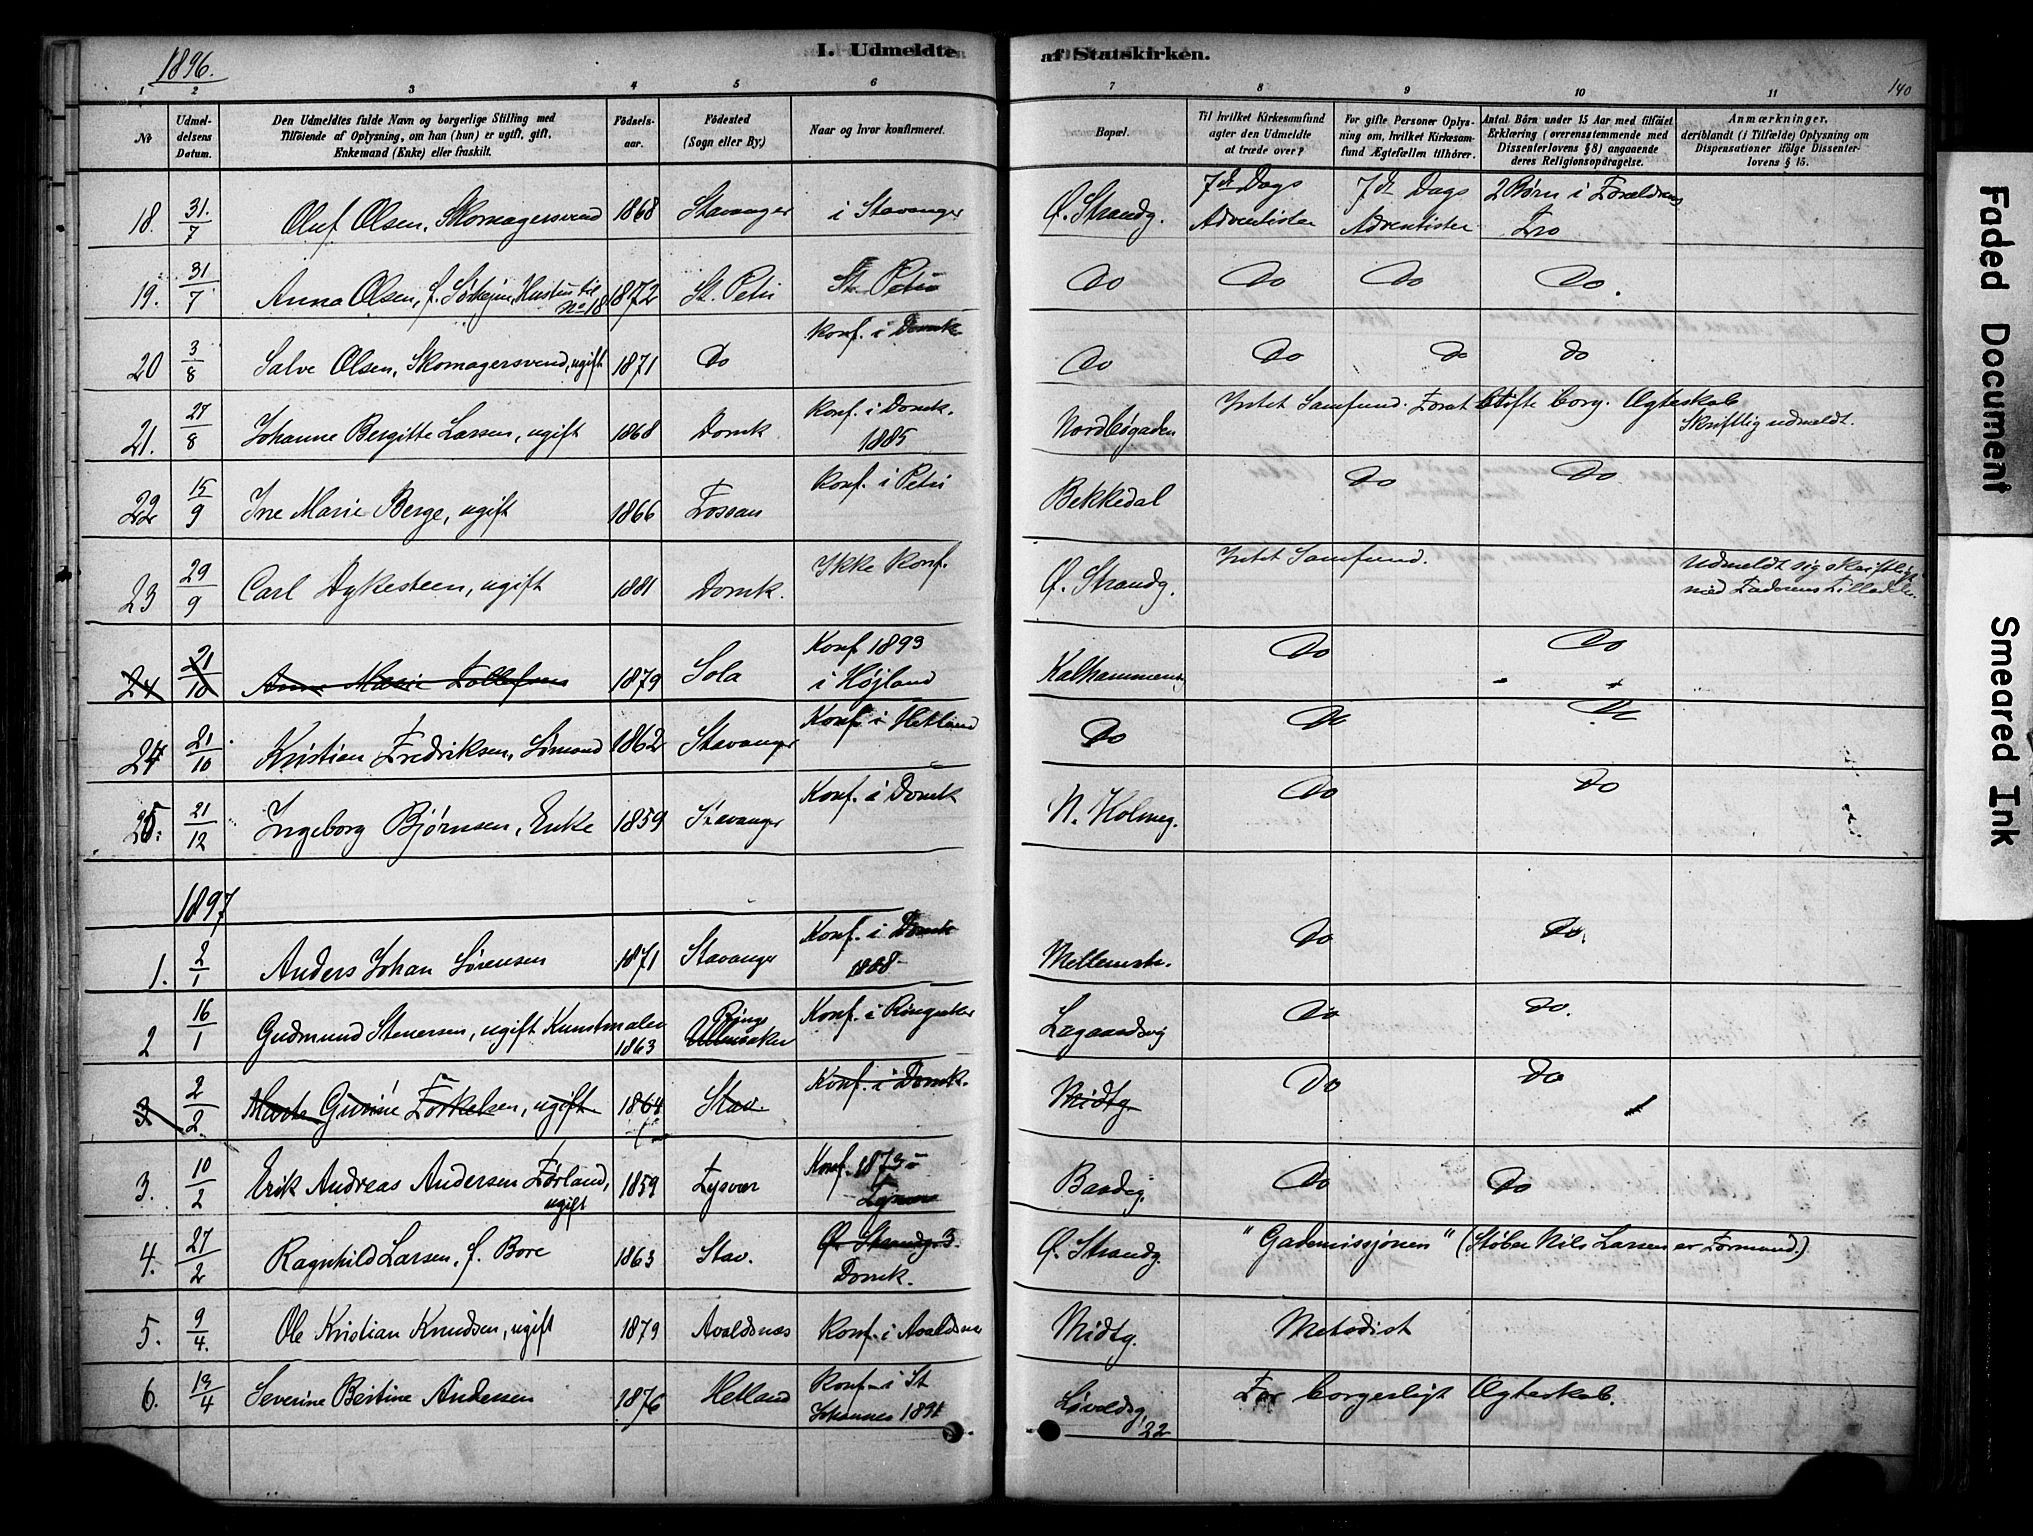 1896.
I. Udmeldte
af Statskirken.
140
1 2 3 4 5 6 7 8 9 10 11
Nr
Udmel-
delsens
Datum.
Den Udmeldtes fulde Navn og borgerlige Stilling med
Tilføiende af Oplysning, om han (hun) er ugift, gift,
Enkemand (Enke) eller fraskilt.
Fødsels-
aar.
Fødested
(Sogn eller By.)
Naar og hvor konfirmeret.
Bopæl.
Til hvilket Kirkesamfund
agter den Udmeldte
at træde over?
For gifte Personer Oplys-
ning om, hvilket Kirkesam-
fund Ægtefællen tilhører.
Antal Børn under 15 Aar med tilføiet
Erklæring (overensstemmende med
Dissenterlovens § 8) angaaende
deres Religionsopdragelse.
Anmærkninger,
deriblandt (i Tilfælde) Oplysning om
Dispensationer ifölge Dissenter-
lovens § 15.
18. 31/7 Oluf Olsen, Skomagersvend 1868 Stavanger i Stavanger Ø. Strandg. 7de Dags Adventister 7de Dags Adventister 2 Børn i Forældrens Tro
19. 31/7 Anna Olsen, f. Hustru til No 18 1872 St. Petri St. Petri Do Do Do Do.
20 3/8 Salve Olsen, Skomagersvend, ugift 1871 Do Konf. i Domk. Do Do Do Do
21. 27/8 Johanne Bergitte Larsen, ugift 1868 Domk. Konf. i Domk. 1885 Nordbøgaden Intet Samfund. Forat stifte borg. Ægteskab Skriftlig udmeldt.
22 15/9 Ine Marie Berge, ugift 1866 Fossan Konf. i Petri Bekkedal Do Do
23 29/9 Carl Dykesteen, ugift 1881 Domk. Ikke Konf. Ø. Strandg. Intet Samfund. Udmeldt sig skriftligt med Faderens Tilladelse.
24 21/10 Anne Marie Tollefsen 1879 Sola Konf 1893 i Højland Kalhammeren Do Do
24 21/10 Kristian Fredriksen, Sømand 1862 Stavanger Konf. i Hetland Do Do Do
25. 21/12 Ingeborg Bjørnsen, Enke 1859 Stavanger Konf. i Domk N. Holmeg. Do Do
1897
1. 2/1 Anders Johan Sørensen 1871 Stavanger Konf. i Domk Mellemstr. Do Do.
2 16/1 Gudmund Stenersen, ugift Kunstmaler 1863 Ringsaker Konf. i Ringsaker Lagaardsvg Do Do.
3 2/2 Gurine Torkelsen, ugift 1864 Stav. Konf. i Domk. Midtg. Do Do
3. 10/2 Erik Andreas Andersen Førland, ugift 1859 Tysvær Konf. 1873 Baadeg. Do Do
4. 27/2 Ragnhild Larsen, f. Bore 1863 Stav. Ø. Strandg. 3. Domk. Ø. Strandg. "Gademissjonen" (Støber Nils Larsen er Formand.)
5. 9/4 Ole Kristian Knudsen, ugift 1879 Avaldsnæs Konf. i Avaldsnæs Midtg. Metodist
6. 13/4 Severine Bertine Andersen 1876 Hetland Konf. i St Johannes 1891 Løvoldsg. 22 For borgerligt Ægteskab.
Faded Document
Smeared Ink